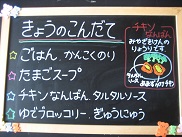 きょうのこんだて
☆ごはん、かんこくのり
☆たまごスープ
☆チキンなんばん、タルタルソース
☆ゆでブロッコリー、ぎゅうにゅう
チキンなんばん
みやざきけんの
りょうりです
タルタル
ソース